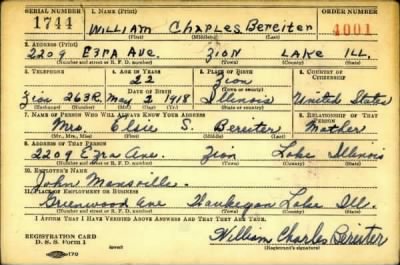 SERIAL NUMBER 1. NAME (Print) ORDER NUMBER
1744 WILLIAM CHARLES BEREITER 4001
(First) (Middle) (Last)
2. ADDRESS (Print)
2209 EZRA AVE. ZION LAKE ILL.
(Number and street or R. F. D. number) (Town) (County) (State)
3. TELEPHONE 4. AGE IN YEARS 5. PLACE OF BIRTH 6. COUNTRY OF CITIZENSHIP
22 Zion
DATE OF BIRTH (Town or county)
Zion 263R May 2 1918 Illinois United States
(Exchange) (Number) (Mo.) (Day) (Yr.) (State or country)
7. NAME OF PERSON WHO WILL ALWAYS KNOW YOUR ADDRESS 8. RELATIONSHIP OF THAT PERSON
Mrs Elsie S. Bereiter Mother
(Mr., Mrs., Miss) (First) (Middle) (Last)
9. ADDRESS OF THAT PERSON
2209 Ezra Ave. Zion Lake Illinois
(Number and street or R. F. D. number) (Town) (County) (State)
10. EMPLOYER'S NAME
John Mansville.
11. PLACE OF EMPLOYMENT OR BUSINESS
Greenwood Ave Waukegan Lake Ill.
(Number and street or R. F. D. number) (Town) (County) (State)
I AFFIRM THAT I HAVE VERIFIED ABOVE ANSWERS AND THAT THEY ARE TRUE.
REGISTRATION CARD
D. S. S. Form 1 William Charles Bereiter
(Registrant's signature)